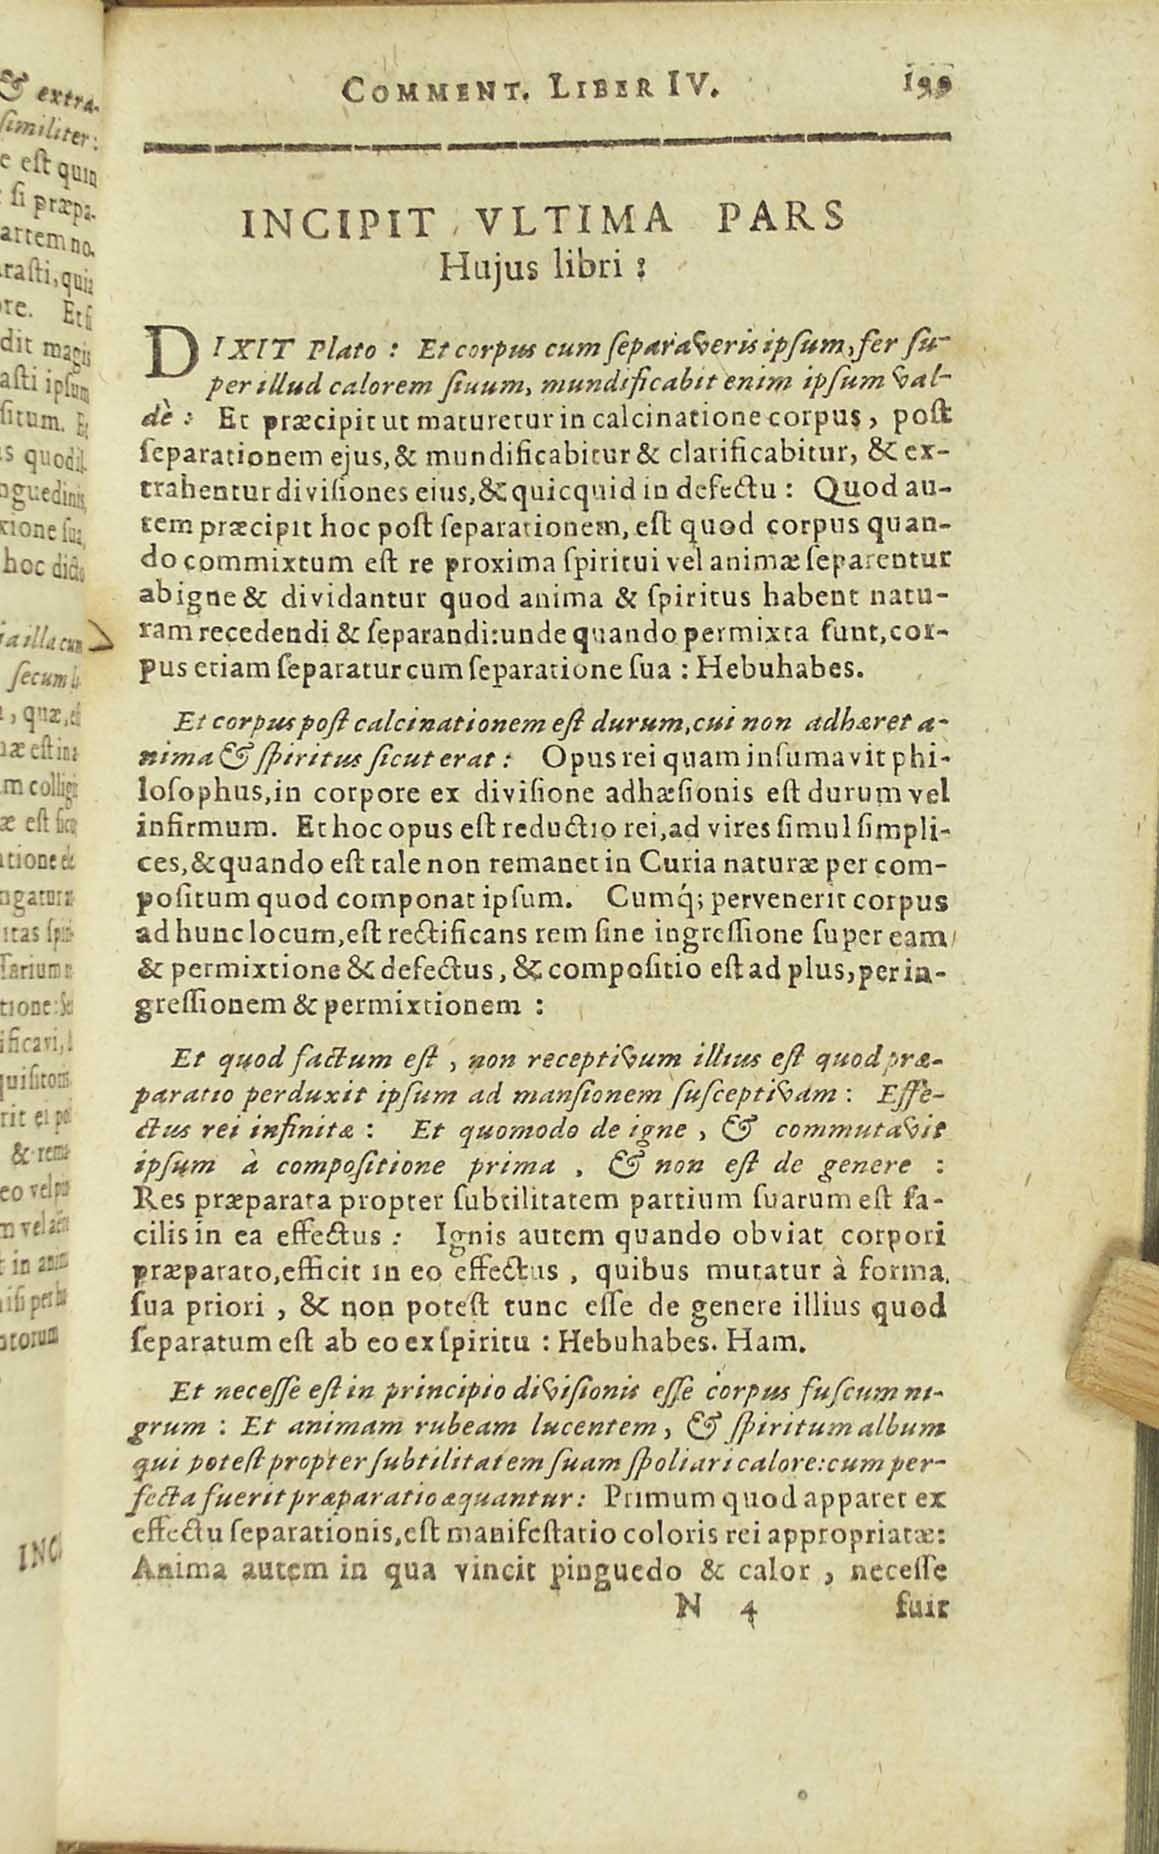 COMMENT. LIBER IV. 199
INCIPIT VLTIMA PARS
Hujus libri:
DIXIT Plato: Et corpus cum ſeparaveris ipſum, fer ſu-
per illud calorem ſiuum, mundificabit enim ipſum val-
dè: Et præcipit ut maturetur in calcinatione corpus, poſt
ſeparationem ejus, & mundificabitur & clarificabitur, & ex-
trahentur diviſiones eius, & quicquid in defectu: Quod au-
tem præcipit hoc poſt ſeparationem, eſt quod corpus quan-
do commixtum eſt re proxima ſpiritui vel animæ ſeparentur
ab igne & dividantur quod anima & ſpiritus habent natu-
ram recedendi & ſeparandi: unde quando permixta ſunt, cor-
pus etiam ſeparatur cum ſeparatione ſua: Hebuhabes.
Et corpus poſt calcinationem eſt durum, cui non adhæret a-
nima & ſpiritus ſicut erat: Opus rei quam inſumavit phi-
loſophus, in corpore ex diviſione adhæſionis eſt durum vel
infirmum. Et hoc opus eſt reductio rei, ad vires ſimul ſimpli-
ces, & quando eſt tale non remanet in Curia naturæ per com-
poſitum quod componat ipſum. Cumq́; pervenerit corpus
ad hunc locum, eſt rectificans rem ſine ingreſſione ſuper eam
& permixtione & defectus, & compoſitio eſt ad plus, per in-
greſſionem & permixtionem:
Et quod factum eſt, non receptivum illius eſt quod præ-
paratio perduxit ipſum ad manſionem ſuſceptivam: Effe-
ctus rei infinitæ: Et quomodo de igne, & commutavit
ipſum à compoſitione prima, & non eſt de genere:
Res præparata propter ſubtilitatem partium ſuarum eſt fa-
cilis in ea effectus: Ignis autem quando obviat corpori
præparato, efficit in eo effectus, quibus mutatur à forma
ſua priori, & non poteſt tunc eſſe de genere illius quod
ſeparatum eſt ab eo ex ſpiritu: Hebuhabes. Ham.
Et neceſſe eſt in principio diviſionis eſſe corpus fuſcum ni-
grum: Et animam rubeam lucentem, & ſpiritum album
qui poteſt propter ſubtilitatem ſuam ſpoliari calore: cum per-
fecta fuerit præparatio æquantur: Primum quod apparet ex
effectu ſeparationis, eſt manifeſtatio coloris rei appropriatæ:
Anima autem in qua vincit pinguedo & calor, neceſſe
N 4 fuit